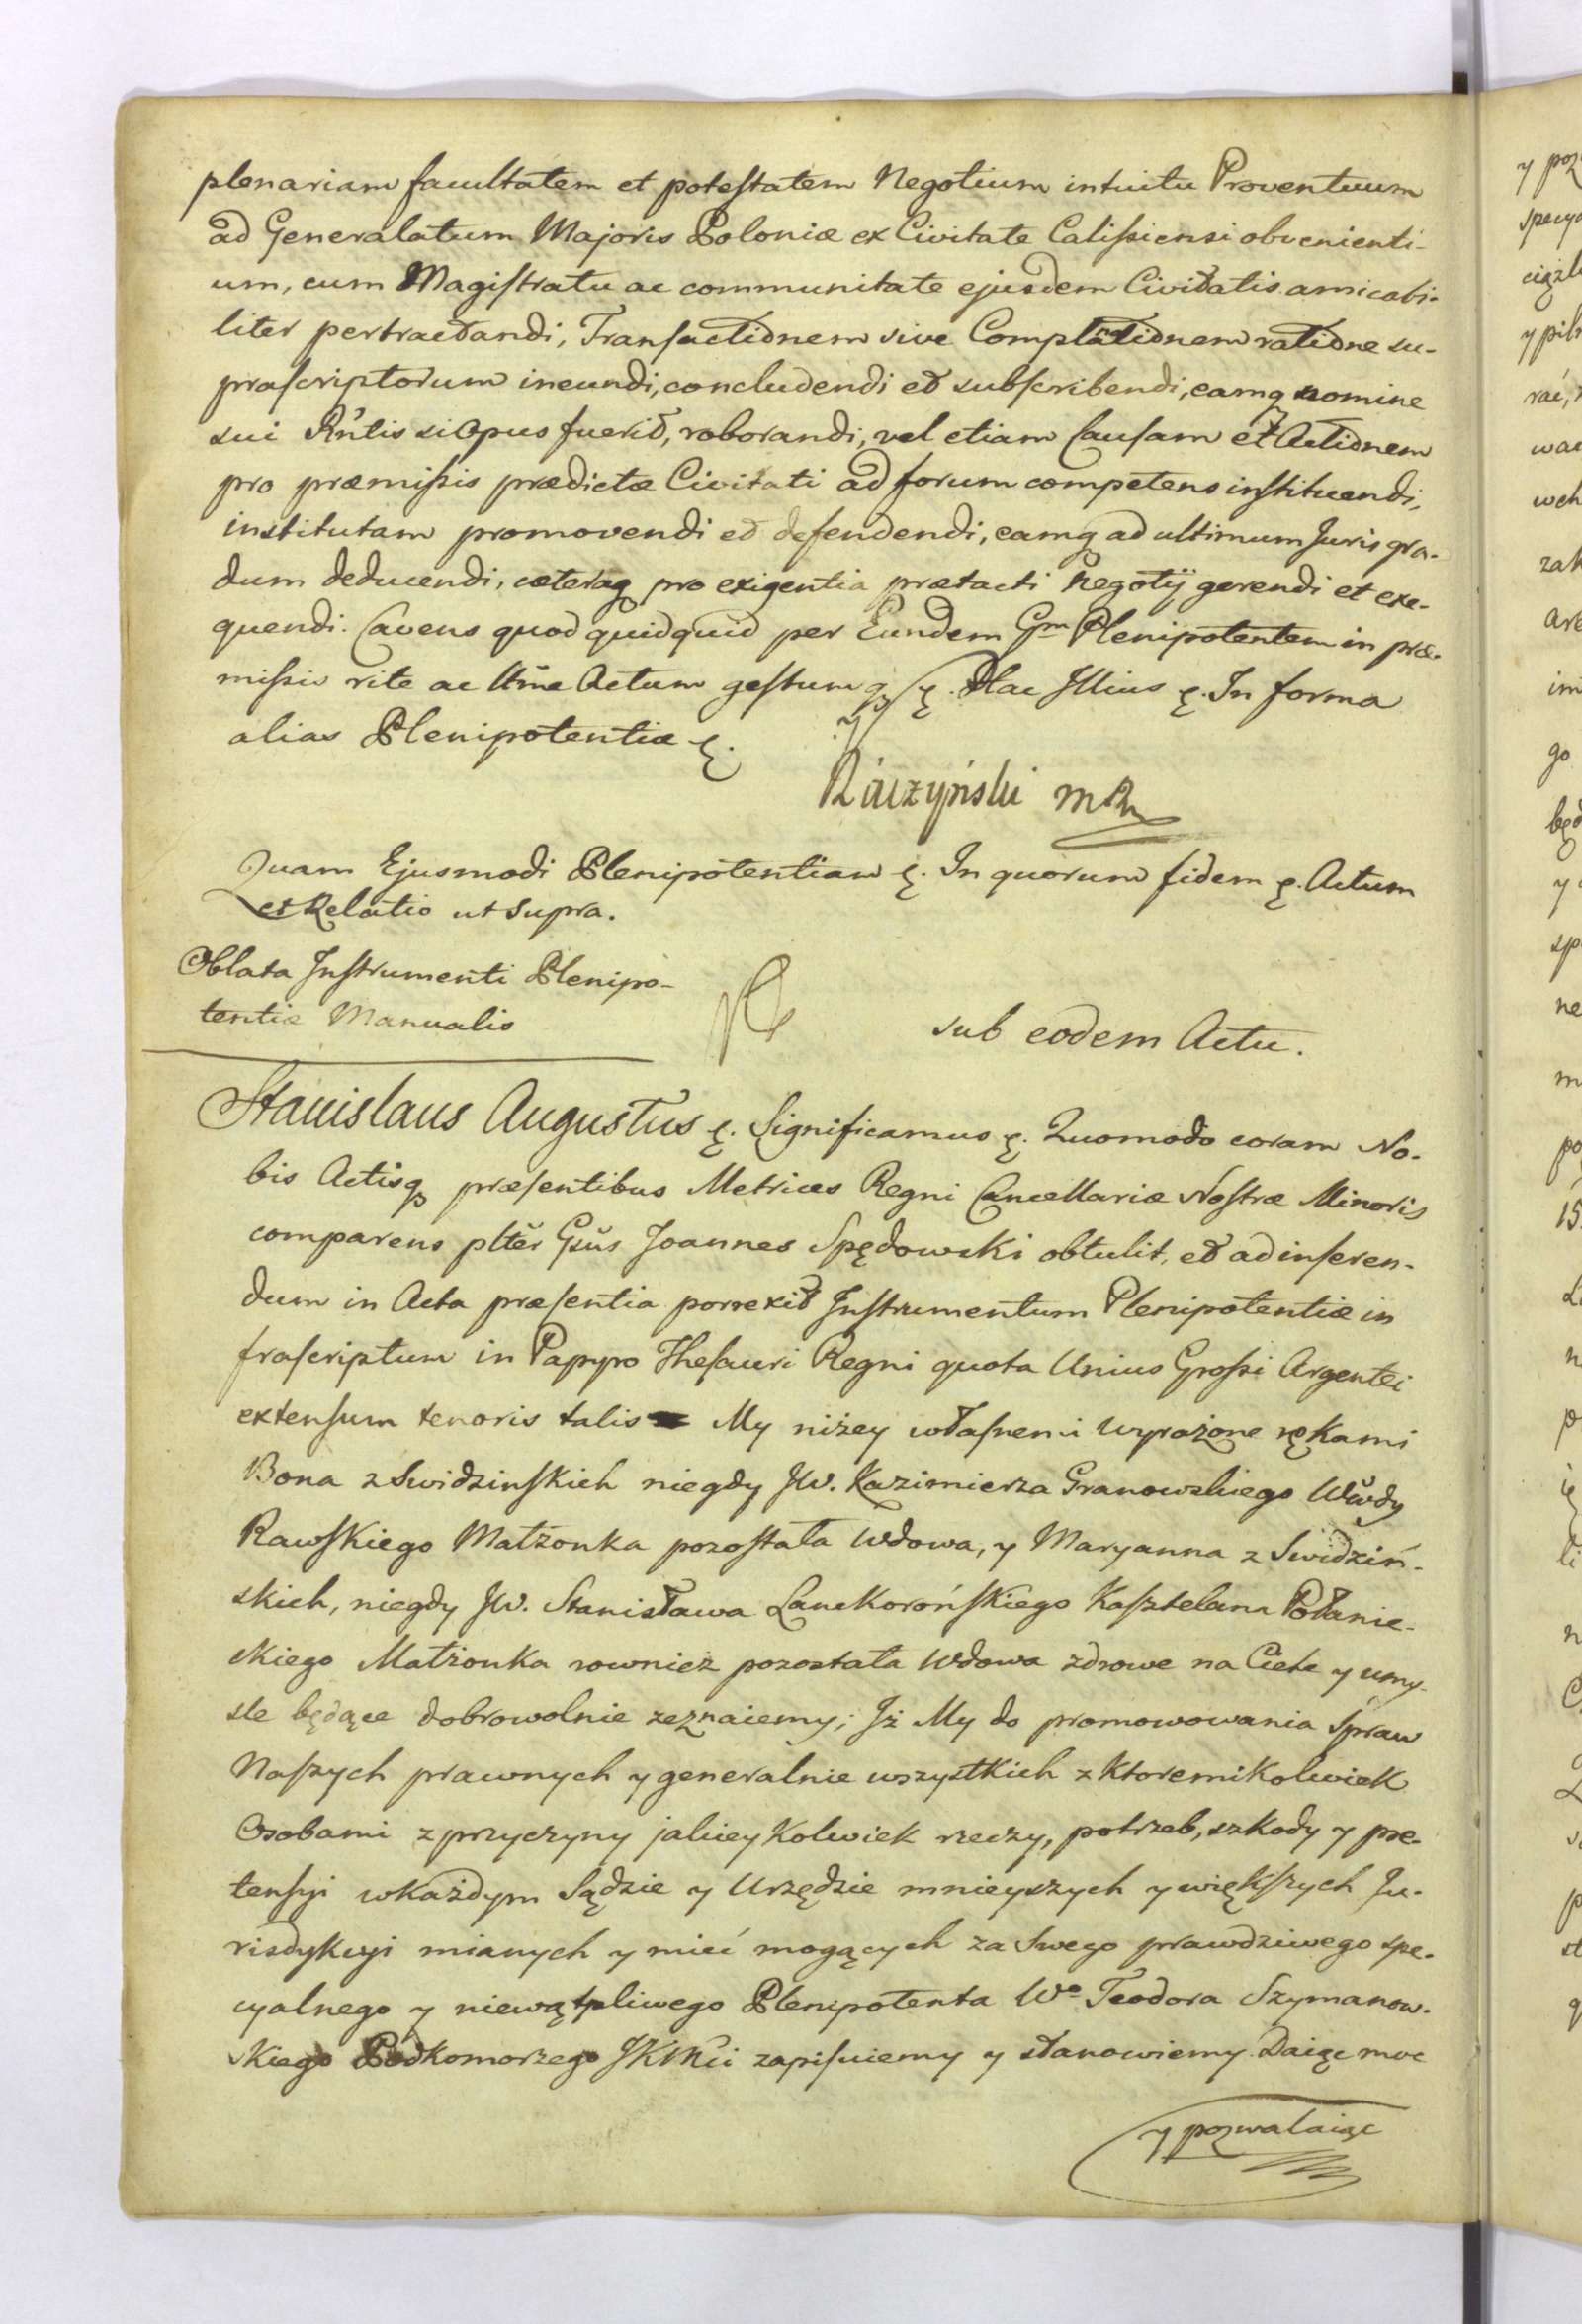 plenariam facultatem et potestatem Negotium intuitu Proventuum
ad Generalatum Majoris Poloniæ ex Civitate Calissiensi obvenienti-
um, cum Magistratu ac communitate ejusdem Civitatis amicabi-
liter pertractandi, Transactionem sive Complanationem ratione su-
prascriptorum ineundi, concludendi et subscribendi, eamq nomine
sui Rn̄tis si Opus fuerit, roborandi, vel etiam Causam et Actionem
pro præmissis prædictæ Civitati ad forum competens instituendi,
institutam promovendi et defendendi, eamq ad ultimum Juris gra-
dum deducendi, cæteraq pro exigentia prætacti Negotÿ gerendi et exe-
quendi. Cavens quod quidquid per Eundem Gm Plenipotentem in præ-
missis rite ac ltīme Actum gestumq Hac Illius ę. In forma
alias Plenipotentiæ ę.
Raczyński mR
Quam Ejusmodi Plenipotentiam ę. In quorum fidem ę. Actum
et Relatio ut supra.
Oblata Instrumenti Plenipo-
tentiæ Manualis
sub eodem Actu.
Stanislaus Augustus ę. Significamus ę. Quomodo coram No-
bis Actisq præsentibus Metrices Regni Cancellariæ Nostræ Minoris
comparens pltĕr Gsŭs Joannes Spędowski obtulit, et ad inseren-
dum in Acta præsentia porrexit Instrumentum Plenipotentiæ in
frascriptum in Papyro Thesauri Regni quota Unius Grossi Argentei
extensum tenoris talis My niżey własnemi wyrażone rękami
Bona z Swidzinskich niegdy JW. Kazimierza Granowskiego Wŵdy
Rawskiego Małżonka pozostała Wdowa, y Maryanna z Swidziń-
skich, niegdy JW. Stanisława Lanckorońskiego Kasztelana Połanie-
ckiego Małżonka rownież pozostała Wdowa zdrowe na Ciele y umy-
sle będące dobrowolnie zeznaiemy; Iż My do promowowania Spraw
Naszych prawnych y generalnie wszystkich z ktoremikolwiek
Osobami z przyczyny jakieykolwiek rzeczy, potrzeb, szkody y pre-
tensyi w każdym Sądzie y Urzędzie mnieyszych y większych Ju-
risdykcyi mianych y mieć mogących za Swego prawdziwego spe-
cyalnego y niewątpliwego Plenipotenta Wo Teodora Szymanow-
skiego Podkomorzego JKMci zapisuiemy y stanowiemy Daiąc moc
y pozwalaiąc